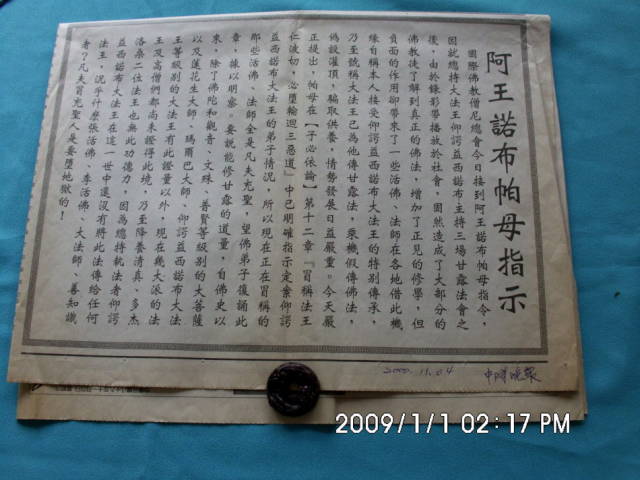 阿王諾布帕母指示
國際佛教僧尼總會今日接到阿王諾布帕母指令，
因就總持大法王仰諤益西諾布主持三場甘露法會之
後，由於錄影帶播放於社會，固然造成了大部分的
佛教徒了解到真正的佛法，增加了正見的修學，但
負面的作用卻帶來了一些活佛、法師在各地借此機
緣自稱本人接受仰諤益西諾布大法王的特別傳承，
乃至號稱大法王已為他傳甘露法，乘機假傳佛法，
偽設灌頂，騙取供養，情勢發展日益嚴重。今天嚴
正提出，帕母在【子必依論】第十二章『冒稱法王
仁波切，必墮輪迴三惡道』中已明確指示定案仰諤
益西諾布大法王的弟子情況，所以現在正在冒稱的
那些活佛、法師全是凡夫充聖，望佛弟子復誦此
章，據以明察。要說能修甘露的道量，自佛史以
來，除了佛陀和觀音、文殊、普賢等級別的大菩薩
以及蓮花生大師、瑪爾巴大師、仰諤益西諾布大法
王等級別的大法王有此證量以外，現在幾大派的法
王及高僧們都尚未證得此境，乃至降養清真、多杰
洛桑二位法王也無此功德力，因為總持執法者仰諤
益西諾布大法王在這一世中還沒有將此法傳給任何
法王，況乎什麼張活佛、李活佛、大法師、善知識
者？凡夫冒充聖人是要墮地獄的！
2000.11.04 中時晚報
2009/1/1 02:17 PM